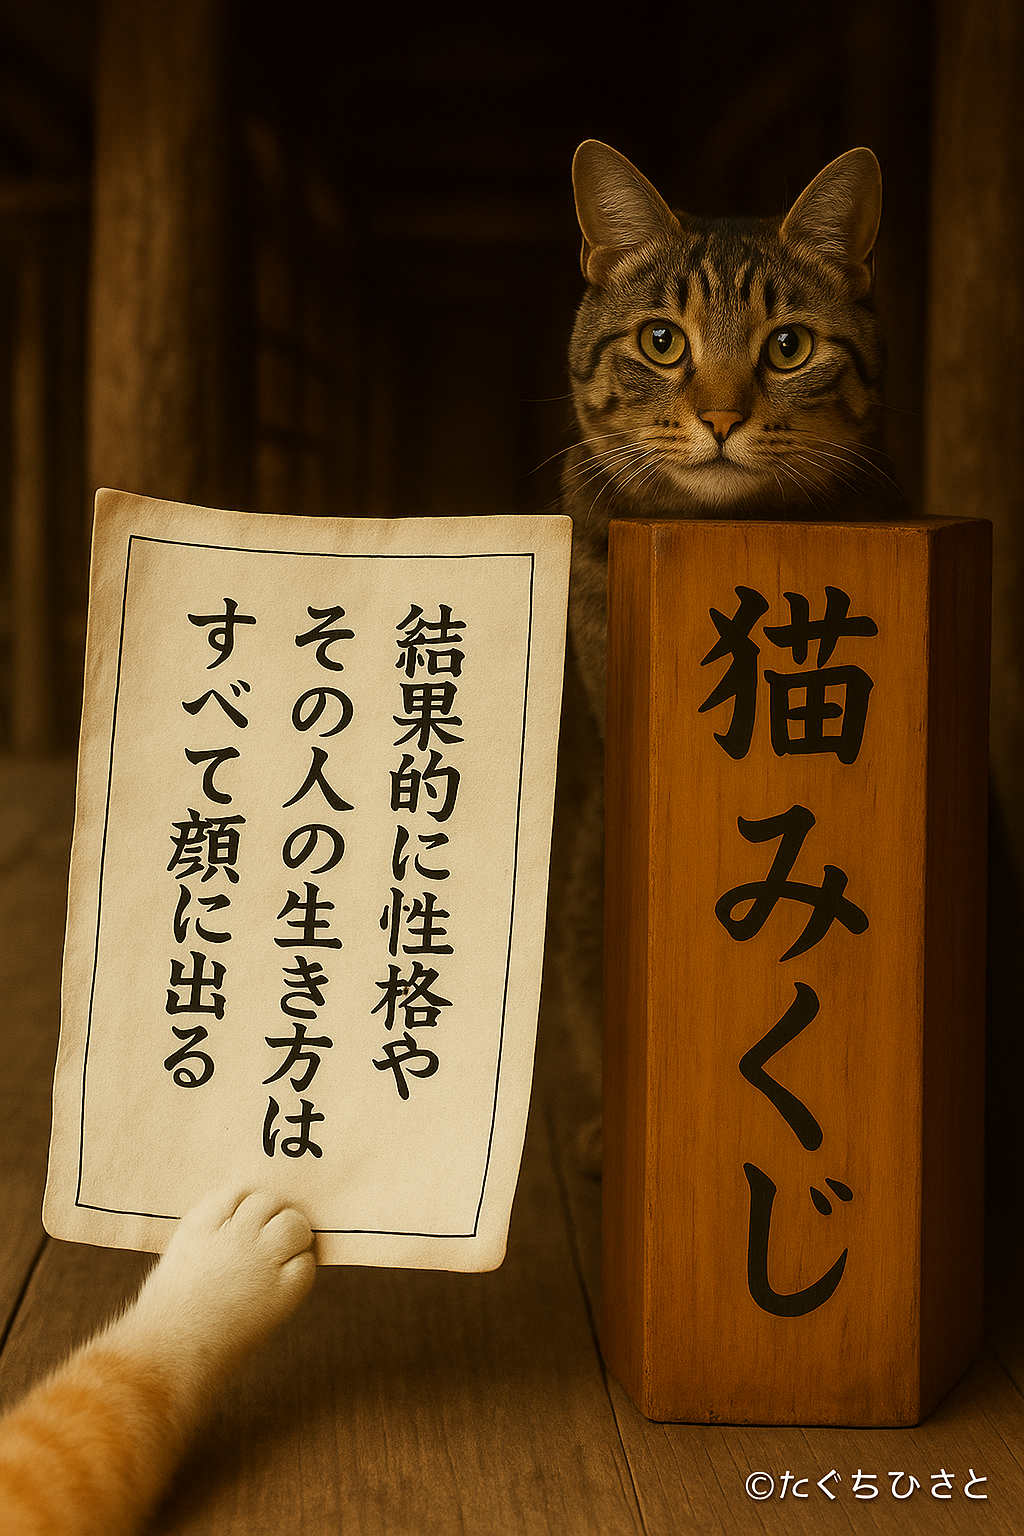 結果的に性格や
その人の生き方は
すべて顔に出る
猫みくじ
©たぐちひさと